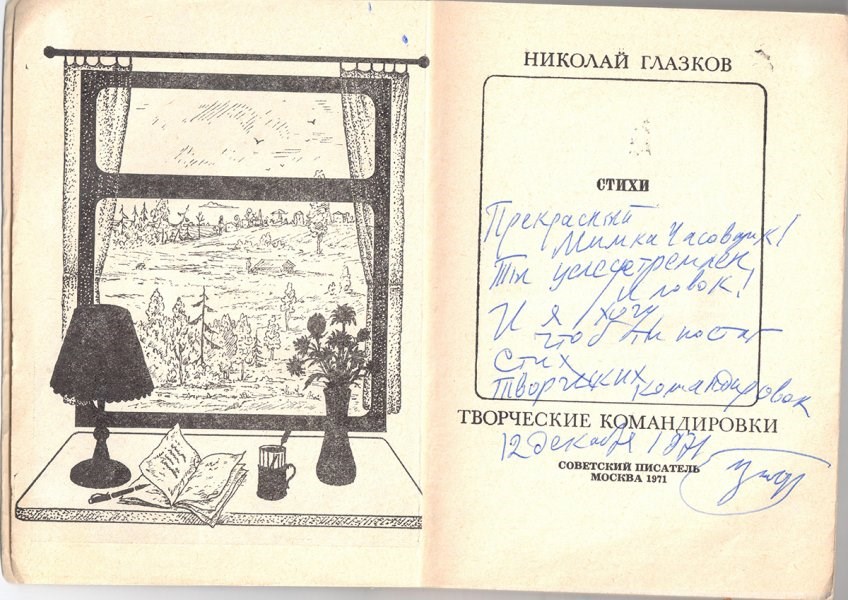 НИКОЛАЙ ГЛАЗКОВ
СТИХИ
Прекрасный
Мимка Часовщик!
Ты целеустремлен
И ловок!
И я хочу
чтоб ты постиг
Стих
творческих командировок
ТВОРЧЕСКИЕ КОМАНДИРОВКИ
12 декабря 1971
СОВЕТСКИЙ ПИСАТЕЛЬ
МОСКВА 1971